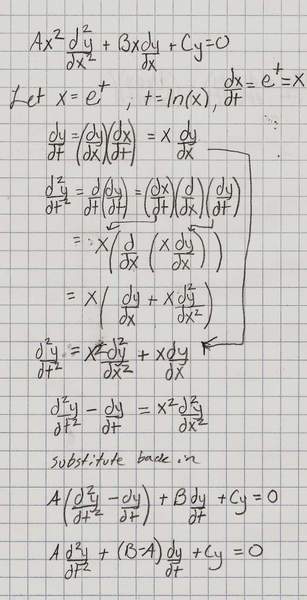 Ax² d²y/dx² + Bx dy/dx + Cy = 0
Let x = eᵗ , t = ln(x), dx/dt = eᵗ = x
dy/dt = (dy/dx)(dx/dt) = x dy/dx
d²y/dt² = d/dt(dy/dt) = (dx/dt)(d/dx)(dy/dt)
= x(d/dx(x dy/dx))
= x(dy/dx + x d²y/dx²)
d²y/dt² = x² d²y/dx² + x dy/dx
d²y/dt² - dy/dt = x² d²y/dx²
substitute back in
A(d²y/dt² - dy/dt) + B dy/dt + Cy = 0
A d²y/dt² + (B-A) dy/dt + Cy = 0